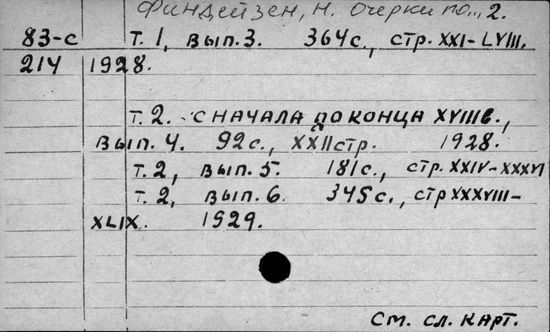 Финдейзен, Н. Очерки по.., 2.
83-с Т. 1, вып. 3. 364 с., стр. XXI-LVIII.
214 1928.
Т. 2. С НАЧАЛА ДО КОНЦА XVIII в.,
вып. 4. 92 с., XXII стр. 1928.
Т. 2, вып. 5. 181 с., стр. XXIV-XXXVI
Т. 2, вып. 6. 345 с., стр XXXVIII-
XLIX. 1929.
См. сл. карт.